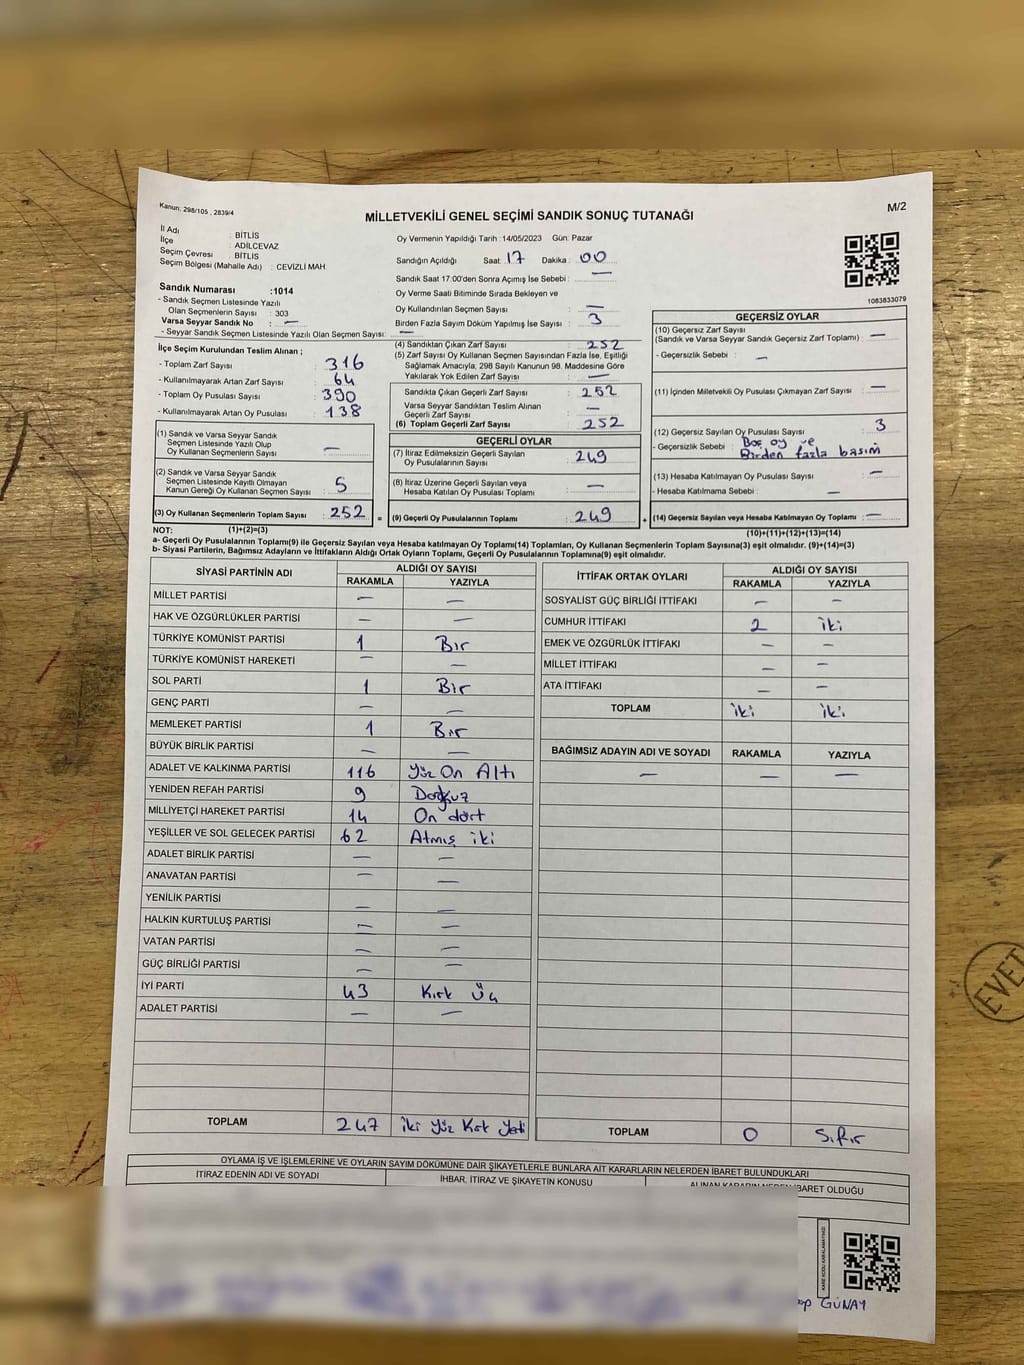 Kanun: 298/105 , 2839/4
MİLLETVEKİLİ GENEL SEÇİMİ SANDIK SONUÇ TUTANAĞI
M/2
İl Adı : BİTLİS
İlçe : ADİLCEVAZ
Seçim Çevresi : BİTLİS
Seçim Bölgesi (Mahalle Adı) : CEVİZLİ MAH.
Oy Vermenin Yapıldığı Tarih :14/05/2023 Gün: Pazar
Sandığın Açıldığı Saat: 17 Dakika : 00
Sandık Saat 17:00'den Sonra Açımış İse Sebebi : —
Sandık Numarası :1014
- Sandık Seçmen Listesinde Yazılı
Olan Seçmenlerin Sayısı : 303
Varsa Seyyar Sandık No : —
- Seyyar Sandık Seçmen Listesinde Yazılı Olan Seçmen Sayısı: —
Oy Verme Saati Bitiminde Sırada Bekleyen ve
Oy Kullandırılan Seçmen Sayısı : —
Birden Fazla Sayım Döküm Yapılmış İse Sayısı : 3
1083833079
İlçe Seçim Kurulundan Teslim Alınan ;
- Toplam Zarf Sayısı : 316
- Kullanılmayarak Artan Zarf Sayısı : 64
- Toplam Oy Pusulası Sayısı : 390
- Kullanılmayarak Artan Oy Pusulası : 138
(1) Sandık ve Varsa Seyyar Sandık
Seçmen Listesinde Yazılı Olup
Oy Kullanan Seçmenlerin Sayısı : —
(2) Sandık ve Varsa Seyyar Sandık
Seçmen Listesinde Kayıtlı Olmayan
Kanun Gereği Oy Kullanan Seçmen Sayısı : 5
(3) Oy Kullanan Seçmenlerin Toplam Sayısı : 252
(4) Sandıktan Çıkan Zarf Sayısı : 252
(5) Zarf Sayısı Oy Kullanan Seçmen Sayısından Fazla İse, Eşitliği
Sağlamak Amacıyla; 298 Sayılı Kanunun 98. Maddesine Göre
Yakılarak Yok Edilen Zarf Sayısı : —
Sandıkta Çıkan Geçerli Zarf Sayısı : 252
Varsa Seyyar Sandıktan Teslim Alınan
Geçerli Zarf Sayısı : —
(6) Toplam Geçerli Zarf Sayısı : 252
GEÇERLİ OYLAR
(7) İtiraz Edilmeksizin Geçerli Sayılan
Oy Pusulalarının Sayısı : 249
(8) İtiraz Üzerine Geçerli Sayılan veya
Hesaba Katılan Oy Pusulası Toplamı : —
= (9) Geçerli Oy Pusulalarının Toplamı : 249
GEÇERSİZ OYLAR
(10) Geçersiz Zarf Sayısı
(Sandık ve Varsa Seyyar Sandık Geçersiz Zarf Toplamı) : —
- Geçersizlik Sebebi : —
(11) İçinden Milletvekili Oy Pusulası Çıkmayan Zarf Sayısı : —
(12) Geçersiz Sayılan Oy Pusulası Sayısı : 3
- Geçersizlik Sebebi : Boş oy ve
Birden fazla basım
(13) Hesaba Katılmayan Oy Pusulası Sayısı : —
- Hesaba Katılmama Sebebi : —
+ (14) Geçersiz Sayılan veya Hesaba Katılmayan Oy Toplamı : —
NOT: (1)+(2)=(3)
(10)+(11)+(12)+(13)=(14)
a- Geçerli Oy Pusulalarının Toplamı(9) ile Geçersiz Sayılan veya Hesaba katılmayan Oy Toplamı(14) Toplamları, Oy Kullanan Seçmenlerin Toplam Sayısına(3) eşit olmalıdır. (9)+(14)=(3)
b- Siyasi Partilerin, Bağımsız Adayların ve İttifakların Aldığı Ortak Oyların Toplamı, Geçerli Oy Pusulalarının Toplamına(9) eşit olmalıdır.
SİYASİ PARTİNİN ADI ALDIĞI OY SAYISI
RAKAMLA YAZIYLA
MİLLET PARTİSİ — —
HAK VE ÖZGÜRLÜKLER PARTİSİ — —
TÜRKİYE KOMÜNİST PARTİSİ 1 Bir
TÜRKİYE KOMÜNİST HAREKETİ — —
SOL PARTİ 1 Bir
GENÇ PARTİ — —
MEMLEKET PARTİSİ 1 Bir
BÜYÜK BİRLİK PARTİSİ — —
ADALET VE KALKINMA PARTİSİ 116 Yüz On Altı
YENİDEN REFAH PARTİSİ 9 Dokuz
MİLLİYETÇİ HAREKET PARTİSİ 14 On dört
YEŞİLLER VE SOL GELECEK PARTİSİ 62 Atmış iki
ADALET BİRLİK PARTİSİ — —
ANAVATAN PARTİSİ — —
YENİLİK PARTİSİ — —
HALKIN KURTULUŞ PARTİSİ — —
VATAN PARTİSİ — —
GÜÇ BİRLİĞİ PARTİSİ — —
İYİ PARTİ 43 Kırk Üç
ADALET PARTİSİ — —
TOPLAM 247 iki Yüz Kırk Yedi
İTTİFAK ORTAK OYLARI ALDIĞI OY SAYISI
RAKAMLA YAZIYLA
SOSYALİST GÜÇ BİRLİĞİ İTTİFAKI — —
CUMHUR İTTİFAKI 2 iki
EMEK VE ÖZGÜRLÜK İTTİFAKI — —
MİLLET İTTİFAKI — —
ATA İTTİFAKI — —
TOPLAM iki iki
BAĞIMSIZ ADAYIN ADI VE SOYADI RAKAMLA YAZIYLA
— — —
TOPLAM 0 Sıfır
OYLAMA İŞ VE İŞLEMLERİNE VE OYLARIN SAYIM DÖKÜMÜNE DAİR ŞİKAYETLERLE BUNLARA AİT KARARLARIN NELERDEN İBARET BULUNDUKLARI
İTİRAZ EDENİN ADI VE SOYADI İHBAR, İTİRAZ VE ŞİKAYETİN KONUSU ALINAN KARARIN NEDEN İBARET OLDUĞU
GÜNAY
EVET